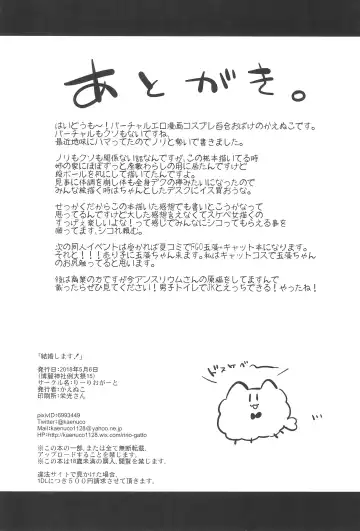 あとがき。
はいどうも~!バーチャルエロ漫画コスプレ百合おばけのかえぬこです。
バーチャルもクソもないですね、
最近地味にハマってたのでノリと勢いで書きました。
ノリもクソも関係ない話なんですが、この原本描いてる時
姉の家にほぼずっと座敷わらしの用に居たんですけど
段ボールを机にして描いてたんですよ。
見事に体調を崩し体も全身デクの棒みたいになったので
みんな絵描く時はちゃんとしたデスクにイス買おうな。
せっかくだからこの本描いた感想でも書いとこうかなって
思ってるんですけど大した感想言えなくてスケベ女描くの
すっげぇ楽しいよな!って感じでみんなにシコってもらえる事を
願ってます、シコれ頼む。
次の同人イベントは受かれば夏コミでFGO玉藻・キャット本になります。
それと!!!ホリ子に玉藻ちゃん来ます。私はキャットコスで玉藻ちゃん
のお尻触ってると思います。
後は商業の方ですが今アンスリウムさんの原稿をしてますんで
載ったらぜひ見てください!男子トイレでJKとえっちできる!やったね!
「結婚します!」
発行日:2018年5月6日
(博麗神社例大祭15)
サークル名:りーりおがーと
発行者:かえぬこ
印刷所:栄光さん
pixivID:6993449
Twitter:@kaenuco
Mail:kaenuco1128@yahoo.ne.jp
HP:http://kaenuco1128.wix.com/mio-gatto
※この本の一部、または全て無断転載、
アップロードすることを禁じます。
※この本は18歳未満の購入、閲覧を禁じます。
違法サイトで見かけた場合、
1DLにつき500円請求させて頂きます。